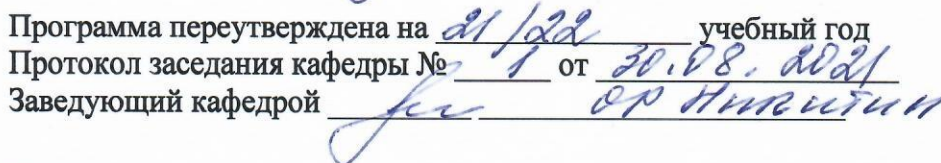 Программа переутверждена на 21/22 учебный год
Протокол заседания кафедры № 1 от 30.08.2021
Заведующий кафедрой ОР Никитин